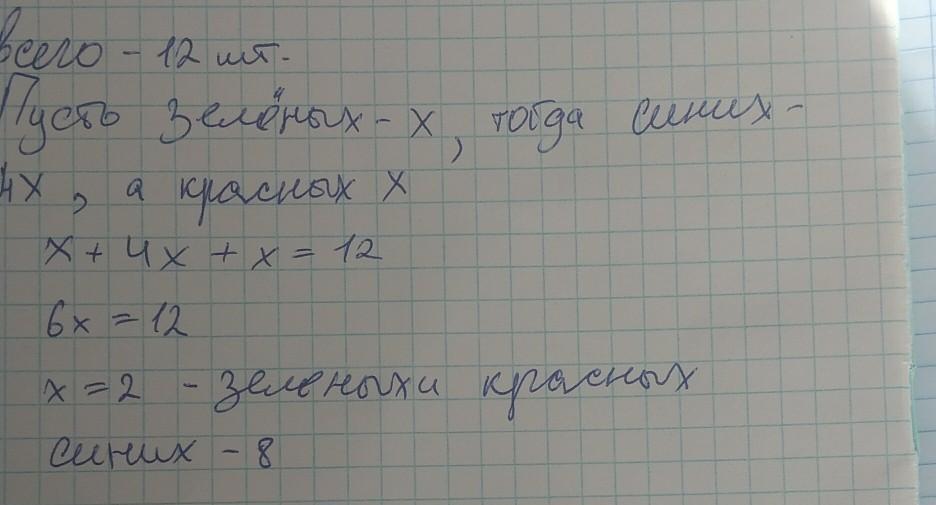 всего - 12 шт.
Пусть зелёных - х, тогда синих -
4х, а красных х
х + 4х + х = 12
6х = 12
х = 2 - зеленых и красных
синих - 8